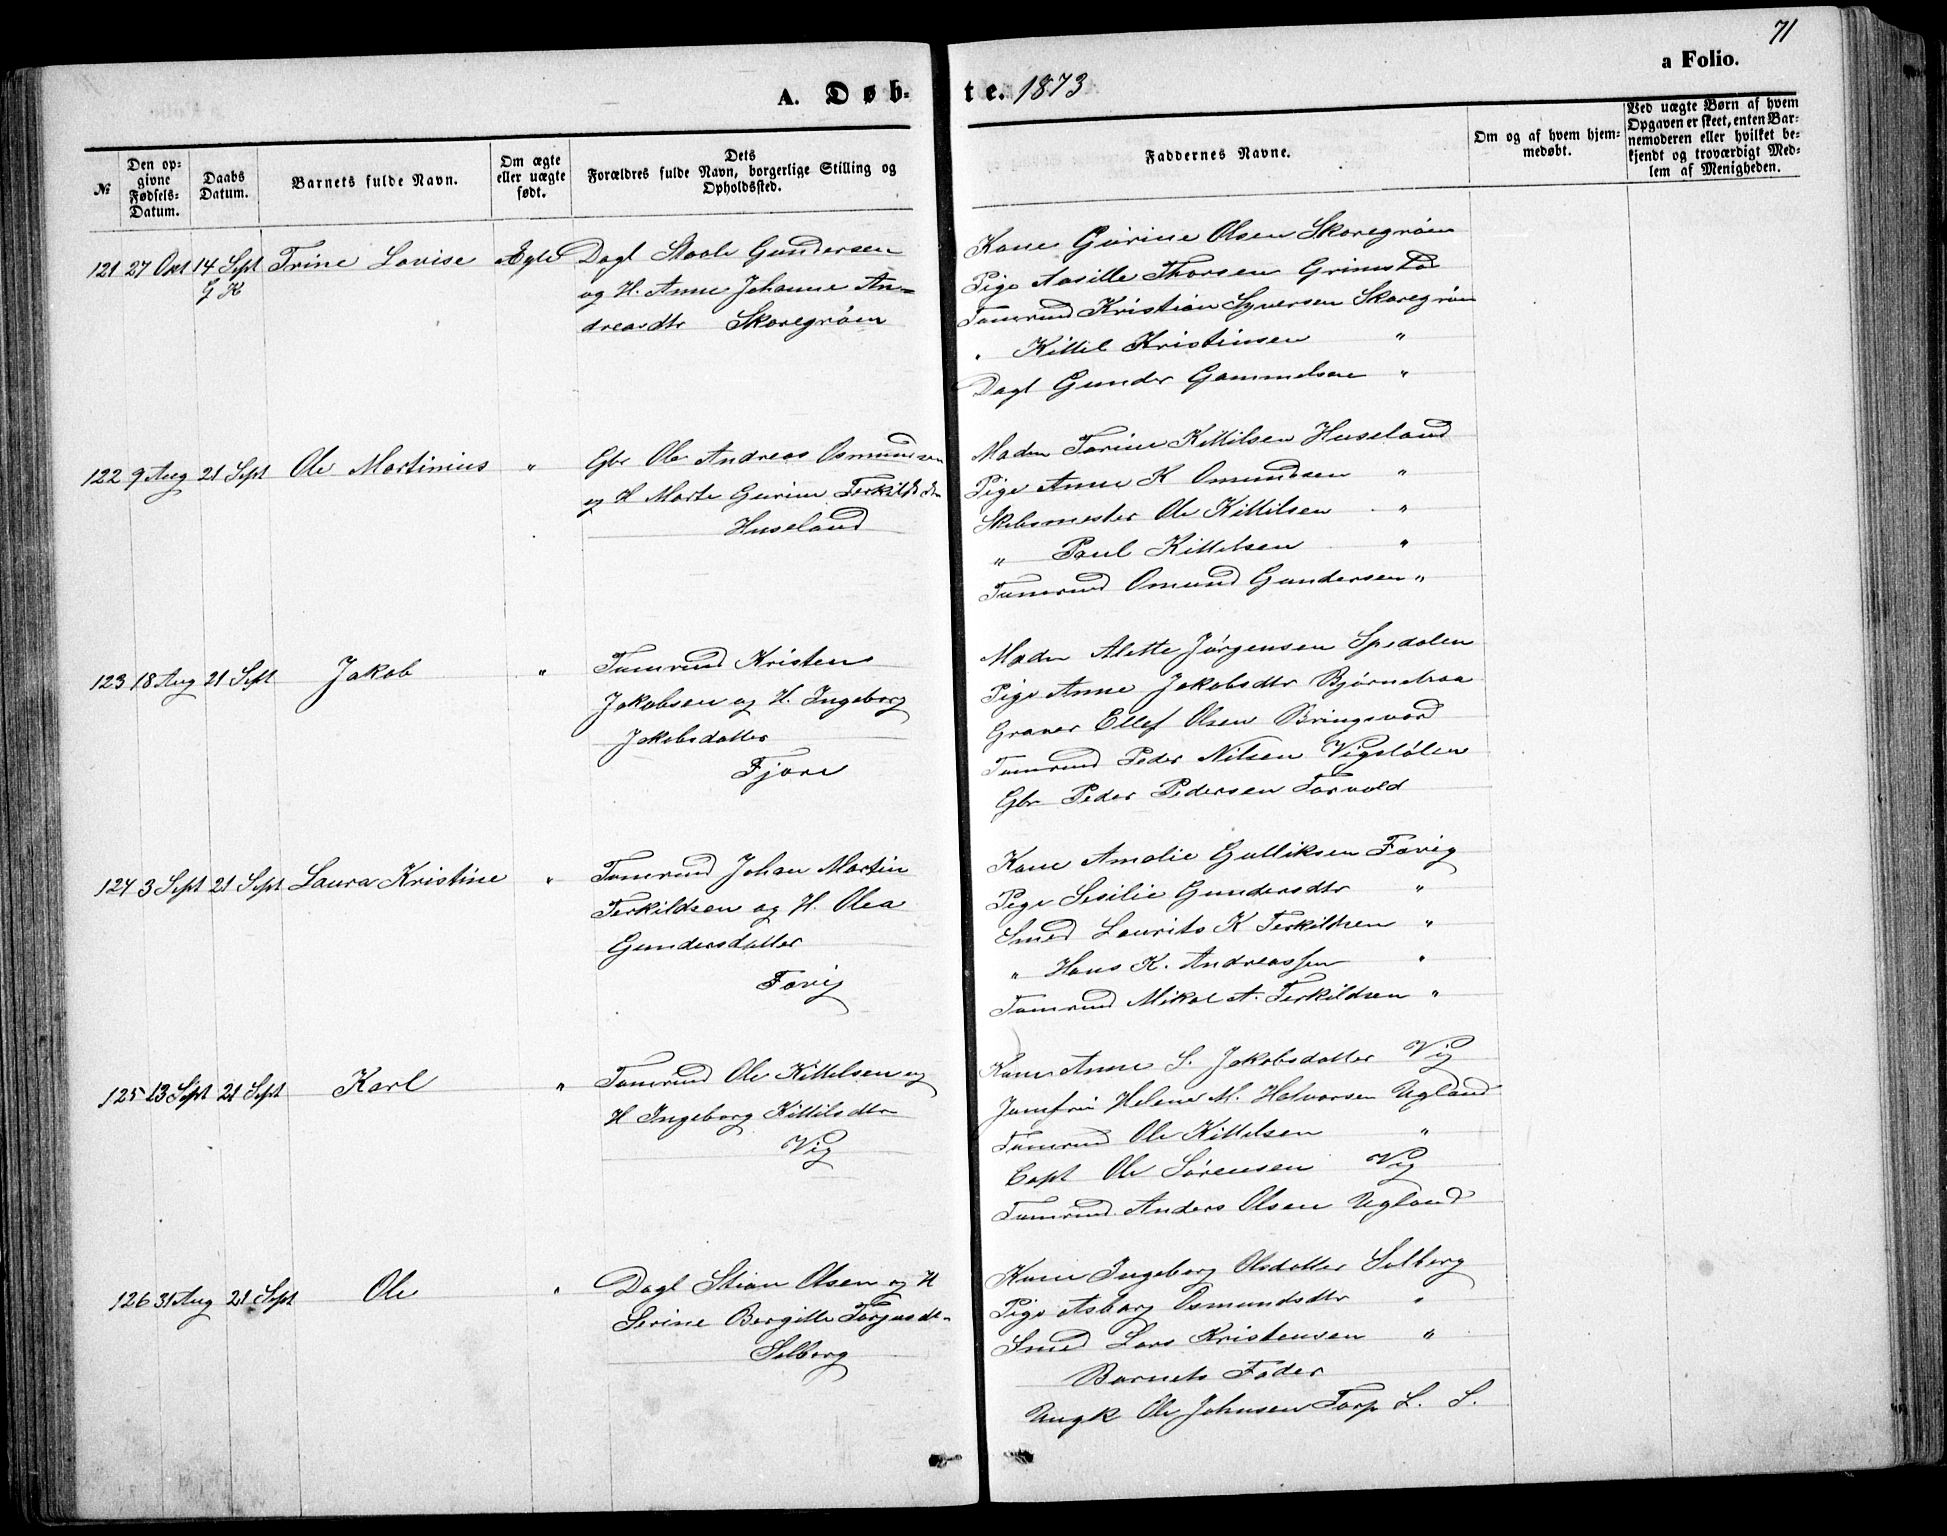 71
a Folio.
A. Døb-
te. 1873
№
Den op-
givne
Fødsels-
Datum.
Daabs
Datum.
Barnets fulde Navn.
Om ægte
eller uægte
født.
Dets
Forældres fulde Navn, borgerlige Stilling og
Opholdssted.
Faddernes Navne.
Om og af hvem hjem-
medøbt.
Ved uægte Børn af hvem
Opgaven er skeet, enten Bar-
nemoderen eller hvilket be-
kjendt og troværdigt Med-
lem af Menigheden.
121 27 14 Sept Trine Lovise Ægte Dagl Gundersen
G K
og H. Anne Johanne An-
dreasdtr Skaregrøm
Kone Gurine Olsen Skaregrøm
Pige Aasille Thorsen Grimstad
Tømrmd Kristian Syversen Skaregrøm
" Kittil Kristinsen "
Dagl Gunder Gammelsen "
122 9 Aug 21 Sept Ole Martinius " Gbr Ole Andreas Osmundsen
og H Marte Gurine Terkildsdtr
Huseland
Madm Torine Kittilsen Huseland
Pige Anne K Omundsen "
Skibsmester Ole Kittilsen "
" Paul Kittelsen "
Tømrmd Omund Gundersen "
123 18 Aug 21 Sept Jakob " Tømrmd Kristen
Jakobsen og H. Ingeborg
Jakobsdatter
Fjære
Madm Alette Jørgensen Spedalen
Pige Anne Jakobsdtr Bjørnebaa
Graver Ellef Olsen Bringsvord
Tømrmd Peder Nilsen Vigstølen
Gbr Peder Pedersen Torvold
124 3 Sept 21 Sept Laura Kristine " Tømrmd Johan Martin
Terkildsen og H. Olea
Gundersdatter
Fevig
Kone Amalie Gulliksen Fevig
Pige Sesilie Gundersdtr "
Smed Laurits K Terkildsen "
" Hans K. Andreassen "
Tømrmd Mikal A. Terkildsen "
125 13 Sept 21 Sept Karl " Tømrmd Ole Kittelsen og
H Ingeborg Kittilsdtr
Vig
Kone Anne S. Jakobsdatter Vig
Jomfru Helene M. Halvorsen Ugland
Tømrmd Ole Kittelsen "
Capt Ole Sørensen Vig
Tømrmd Anders Olsen Ugland
126 31 Aug 21 Sept Ole " Dagl Stian Olsen og H
Serine Bergitte Torjusdr
Solberg
Kone Ingeborg Olsdatter Solberg
Pige Asborg Osmundsdtr "
Smed Lars Kristensen "
Barnets Fader
Ungk Ole Johnsen Torp L. S.